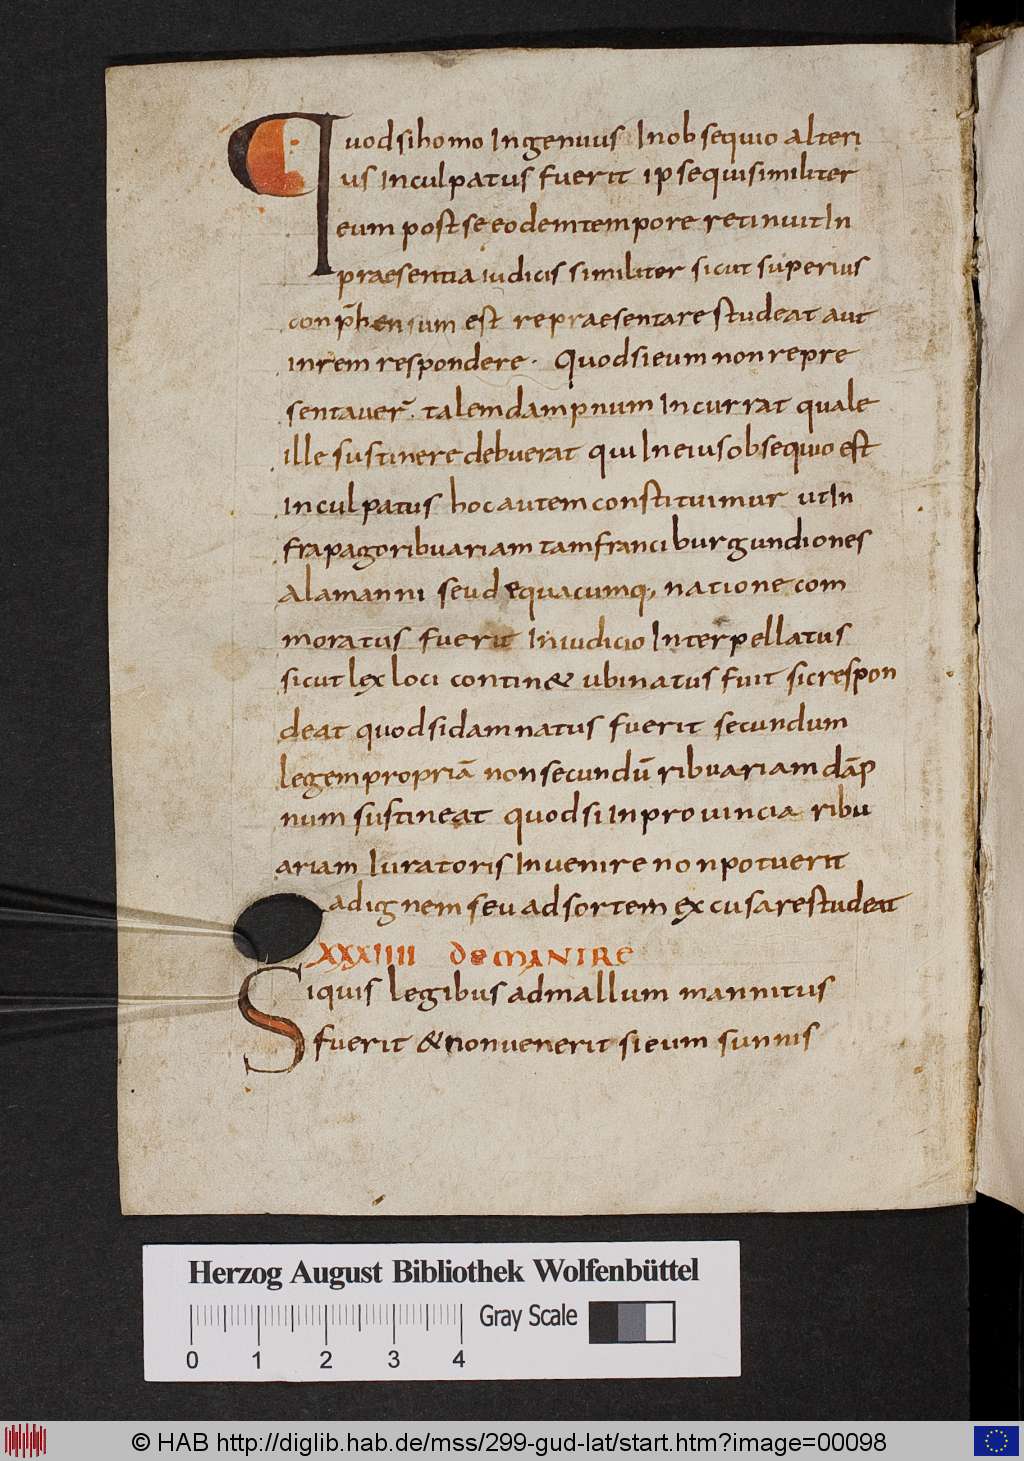 Quodsihomo Ingenuus Inobsequio alteri
us Inculpatus fuerit ipsequisimiliter
eum postse eodemtempore retinuit In
praesentia iudicis similiter sicut superius
conp̄hensum est repraesentare studeat aut
inrem respondere. Quodsieum nonrepre
sentauer̄. talemdampnum Incurrat quale
ille sustinere debuerat qui Ineiusobsequio est
Inculpatus hocautem constituimur utIn
frapagoribuariam tamfranci burgundiones
alamanni seu dequacumq; natione com
moratus fuerit Iniudicio Interpellatus
sicut lex loci contin& ubinatus fuit sicrespon
deat quodsidamnatus fuerit secundum
legempropriā nonsecundū ribuariam dāp
num sustineat quodsi Inprouincia ribu
ariam Iuratoris Inuenire nonpotuerit
adignem seu adsortem excusarestudeat
XXXIIII DEMANIRE
Siquis legibus admallum mannitus
fuerit &nonuenerit sieum sunnis
Herzog August Bibliothek Wolfenbüttel
Gray Scale
0 1 2 3 4
© HAB http://diglib.hab.de/mss/299-gud-lat/start.htm?image=00098